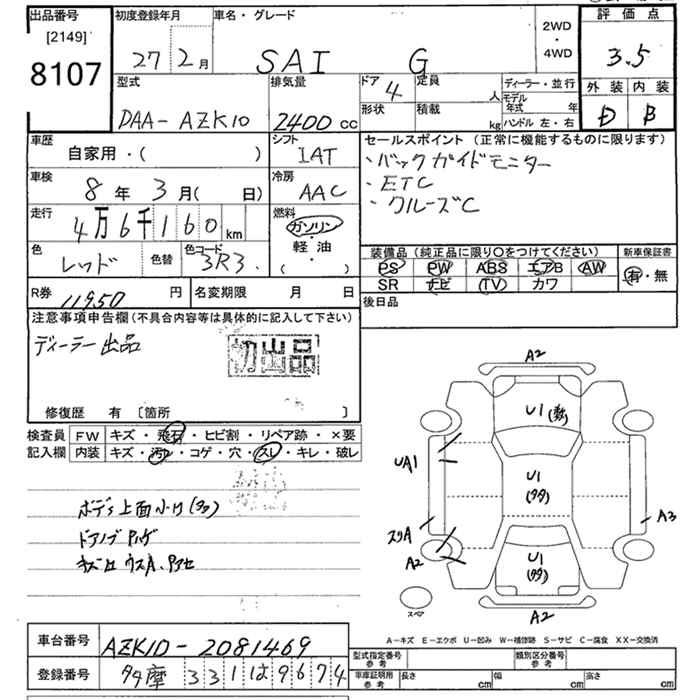 出品番号
[2149]
8107
初度登録年月
27 2月
車名・グレード
SAI G
2WD
・
4WD
評価点
3.5
外装 内装
D B
型式
DAA-AZK10
排気量
2400 cc
ドア 4
定員 人
形状
積載 kg
ディーラー・並行
モデル年式 年
ハンドル 左・右
車歴
自家用・( )
シフト
IAT
車検
8年 3月( 日)
冷房
AAC
走行
4万6千160km
燃料
ガソリン
・
軽油
・
( )
色
レッド
色替
色コード
3R3
R券
11950 円
名変期限 月 日
セールスポイント(正常に機能するものに限ります)
・バックガイドモニター
・ETC
・クルーズC
装備品(純正品に限り○をつけてください)
PS PW ABS エアB AW
SR ナビ (TV) カワ
新車保証書
有・無
後日品
注意事項申告欄(不具合内容等は具体的に記入して下さい)
ディーラー出品
初出品
修復歴 有 〔箇所 〕
検査員記入欄
FW キズ・飛石・ヒビ割・リペア跡・×要
内装 キズ・汚レ・コゲ・穴・スレ・キレ・破レ
A2
U1
UA1
U1
(多々)
スリA
A2
U1
(多々)
A3
スペア
A2
A-キズ E-エクボ U-凹み W-補修跡 S-サビ C-腐食 XX-交換済
車台番号
AZK10-2081469
登録番号
多摩 331 は 9674
型式指定番号
参考
類別区分番号
参考
車庫証明用
参考
長さ cm
幅 cm
高さ cm